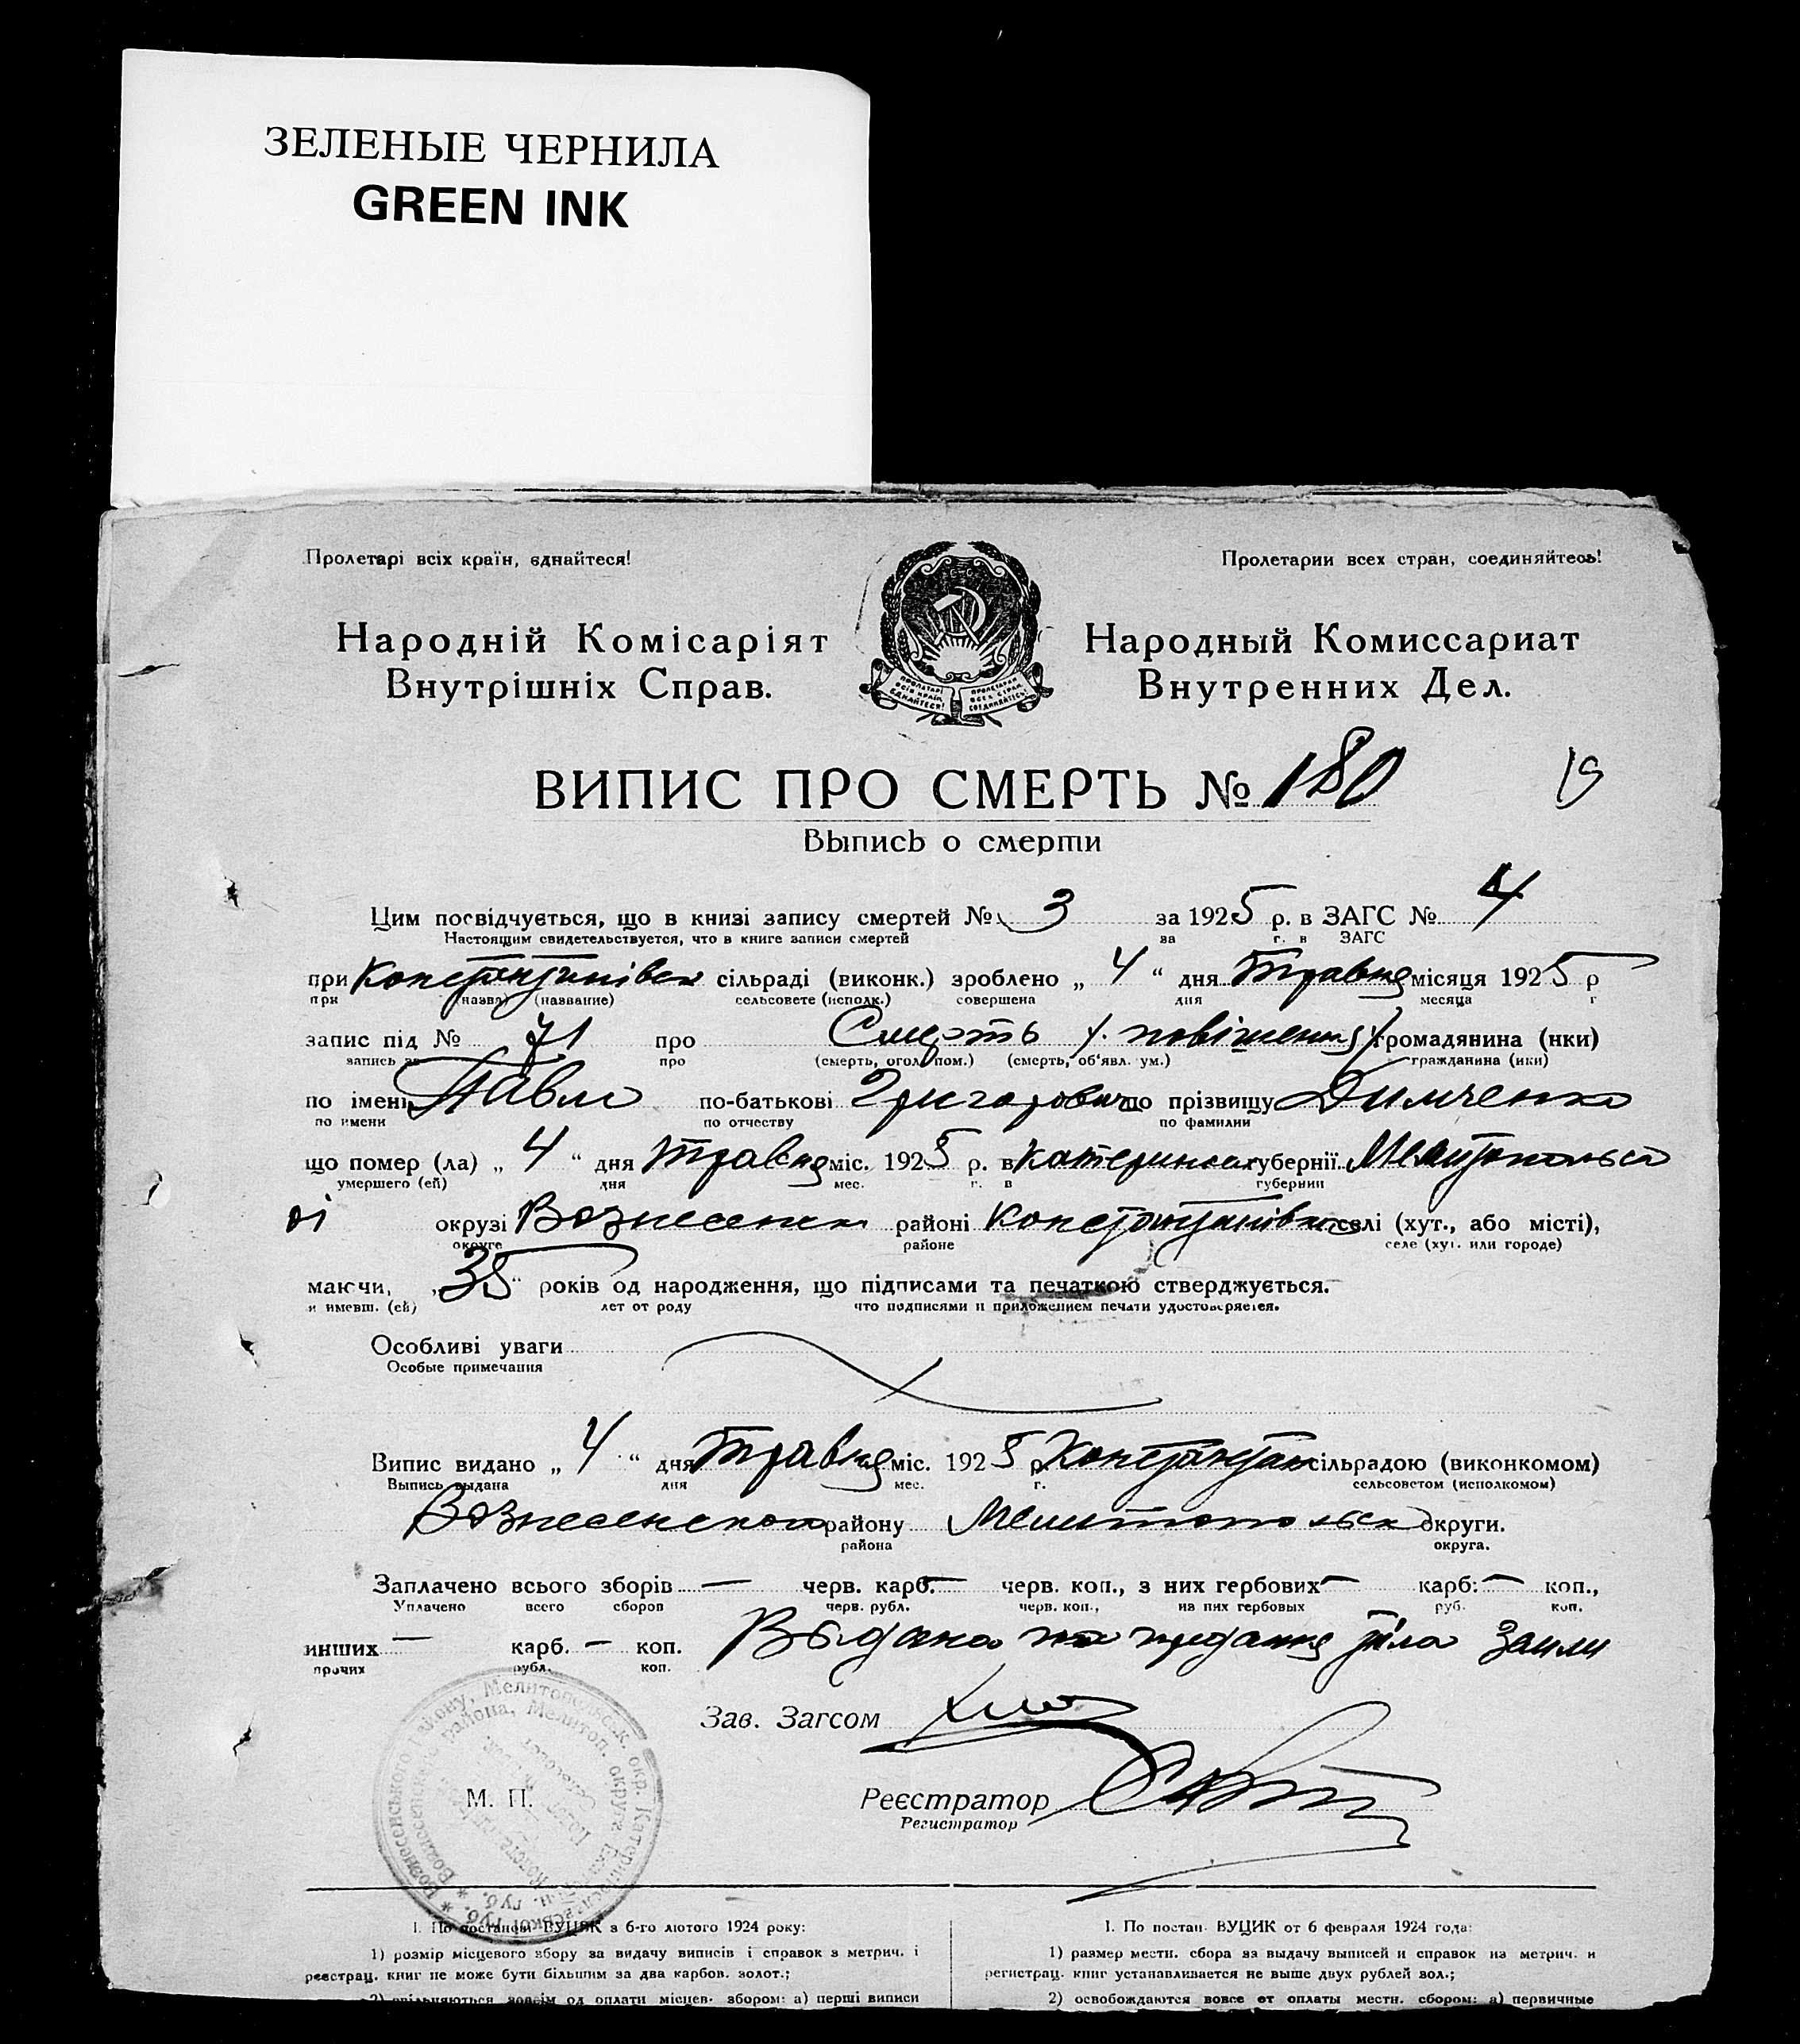 ЗЕЛЕНЫЕ ЧЕРНИЛА
GREEN INK
Пролетарі всіх країн, єднайтеся!
Пролетарии всех стран, соединяйтесь!
Народній Комісаріят
Внутрішніх Справ.
Народный Комиссариат
Внутренних Дел.
ПРОЛЕТАРІ ВСІХ КРАЇН, ЄДНАЙТЕСЯ!
ПРОЛЕТАРИИ ВСЕХ СТРАН, СОЕДИНЯЙТЕСЬ!
ВИПИС ПРО СМЕРТЬ № 180
Выпись о смерти
Цим посвідчується, що в книзі запису смертей № 3 за 1925 р. в ЗАГС № 4
Настоящим свидетельствуется, что в книге записи смертей за г. в ЗАГС
при Констянтинівск сільраді (виконк.) зроблено „ 4 “ дня Травня місяця 1925 р
при (назва) (название) сельсовете (исполк.) совершена дня месяца г
запис під № 71 про Смерть /. повішения / громадянина (нки)
запись за про (смерть, огол. пом.) (смерть, об'явл. ум.) гражданина (нки)
по імені Павло по-батькові Григорович по прізвищу Димченко
по имени по отчеству по фамилии
що помер (ла) „ 4 “ дня Травня міс. 1925 р. в Катеринослав губернії Мелитопольск
умершего (ей) дня мес. г. в губернии
ої окрузі Вознесенск районі Констянтинівка селі (хут., або місті),
округе районе селе (хут. или городе)
маючи, „ 35 “ років од народження, що підписами та печаткою стверджується.
и имевш. (ей) лет от роду что подписями и приложением печати удостоверяется.
Особливі уваги
Особые примечания
Випис видано „ 4 “ дня Травня міс. 1925 р. Констянтин сільрадою (виконкомом)
Выпись выдана дня мес. г. сельсоветом (исполкомом)
Вознесенского району Мелитопольск округи.
района округа.
Заплачено всього зборів — черв. карб. — черв. коп., з них гербових — карб: — коп.,
Уплачено всего сборов черв. рубл. черв. коп., из них гербовых руб. коп.
инших — карб. — коп. Выдана на предання тіла Земли
прочих рубл. коп.
Зав. Загсом
М. П.
Реєстратор
Регистратор
1. По постанові ВУЦВК з 6-го лютого 1924 року:
1) розмір місцевого збору за видачу виписів і справок з метрич. і
реєстрац. книг не може бути більшим за два карбов. золот.;
2) звільняються зовсім од оплати місцев. збором: а) перші виписи
1. По постан. ВУЦИК от 6 февраля 1924 года:
1) размер местн. сбора за выдачу выписей и справок из метрич. и
регистрац. книг устанавливается не выше двух рублей зол.;
2) освобождаются вовсе от оплаты местн. сбором: а) первичные